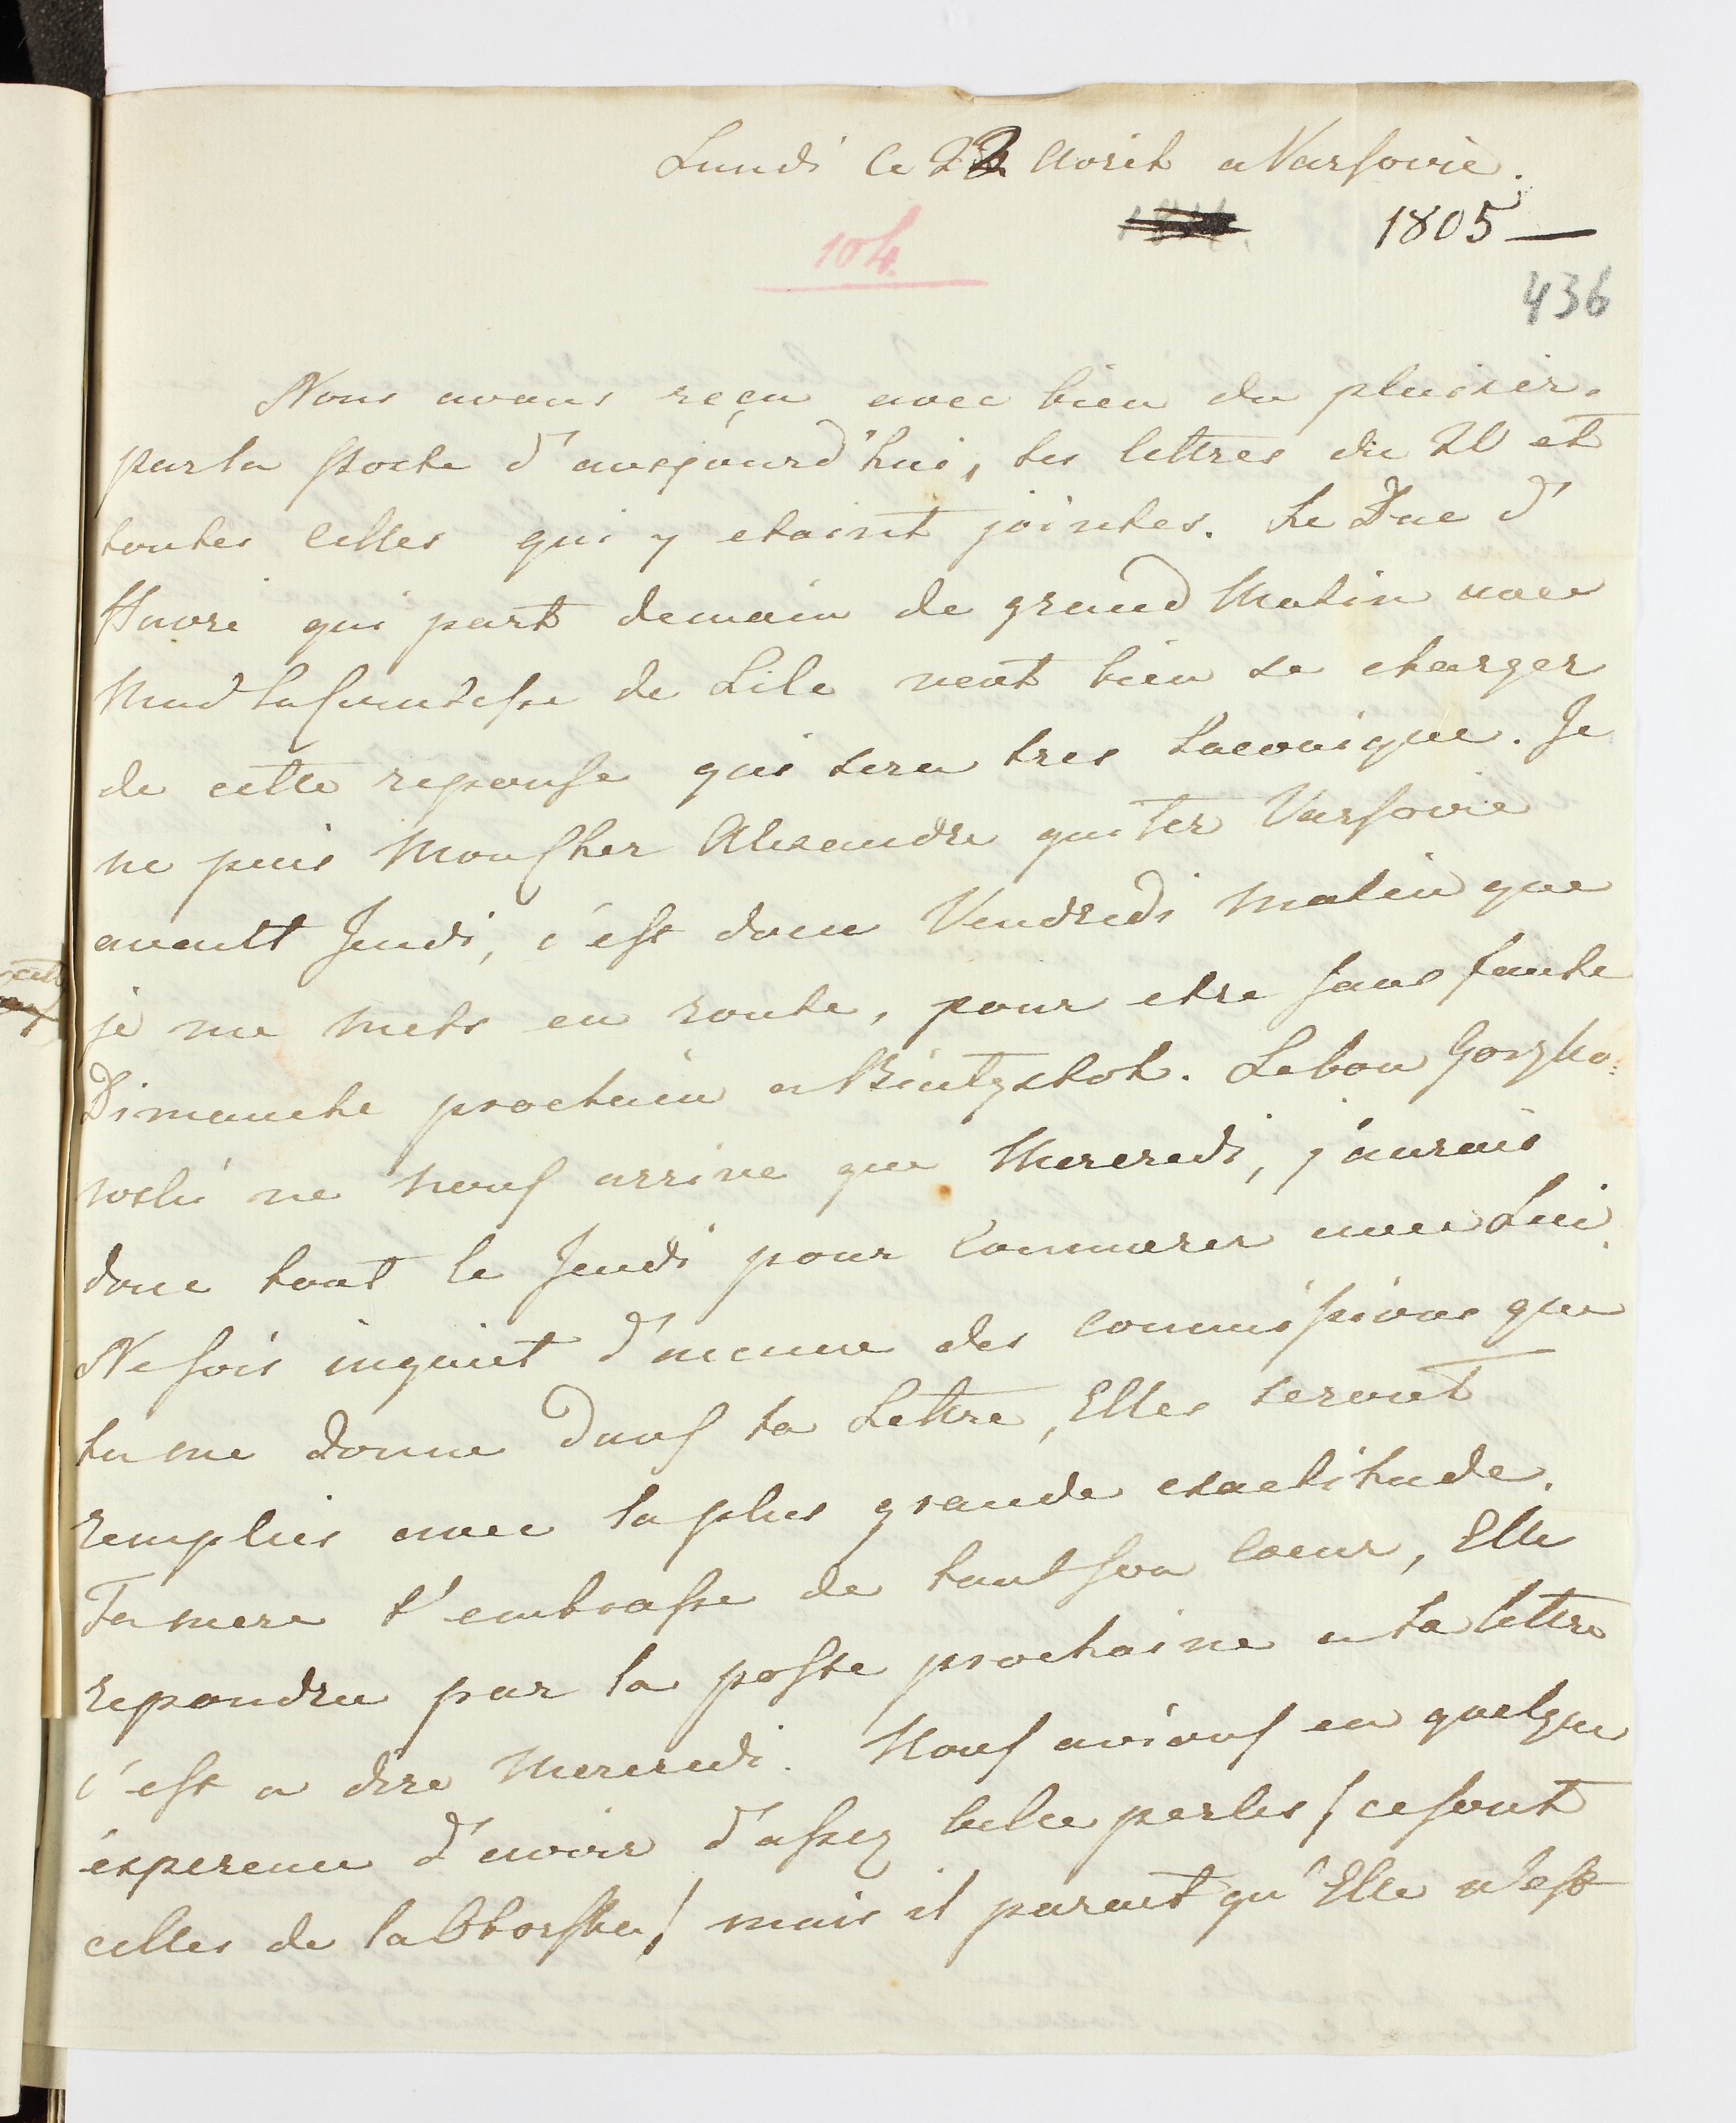 Lundi ce 22 Avril a Varsovie.
1805 —
104
436
Nous avons reçu avec bien du plaisir.
par la Poste d'ausjourd'hui, tes lettres du 20 et
toutes celles qui y etaint jointes. Le Duc d'
Havré qui part demain de grand Matin avec
Mad la Comtesse de Lile veut bien se charger
de cette reponse qui sera tres Laconique. Je
ne puis Mon Cher Alexandre quiter Varsovie
avant Jeudi, c'est donc Vendredi matin que
je me mets en route, pour etre sans faute
Dimanche prochain a Biolystok. Le bon
ne nous arrive que Mercredi, j'aurais
donc tout le Jeudi pour Commerer avec Lui.
Ne sois inquiet d'aucune des commissions que
tu me donne dans ta Lettre, Elles seront
remplies avec la plus grande exactitude.
Ta mere t'embrasse de tout son Coeur, Elle
repondra par la poste prochaine a ta lettre
c'est a dire Mercredi. Nous avions eu quelque
ésperence d'avoir d'assez belles perles / ce sont
celles de la Oborska / mais il parait qu'Elle n'est